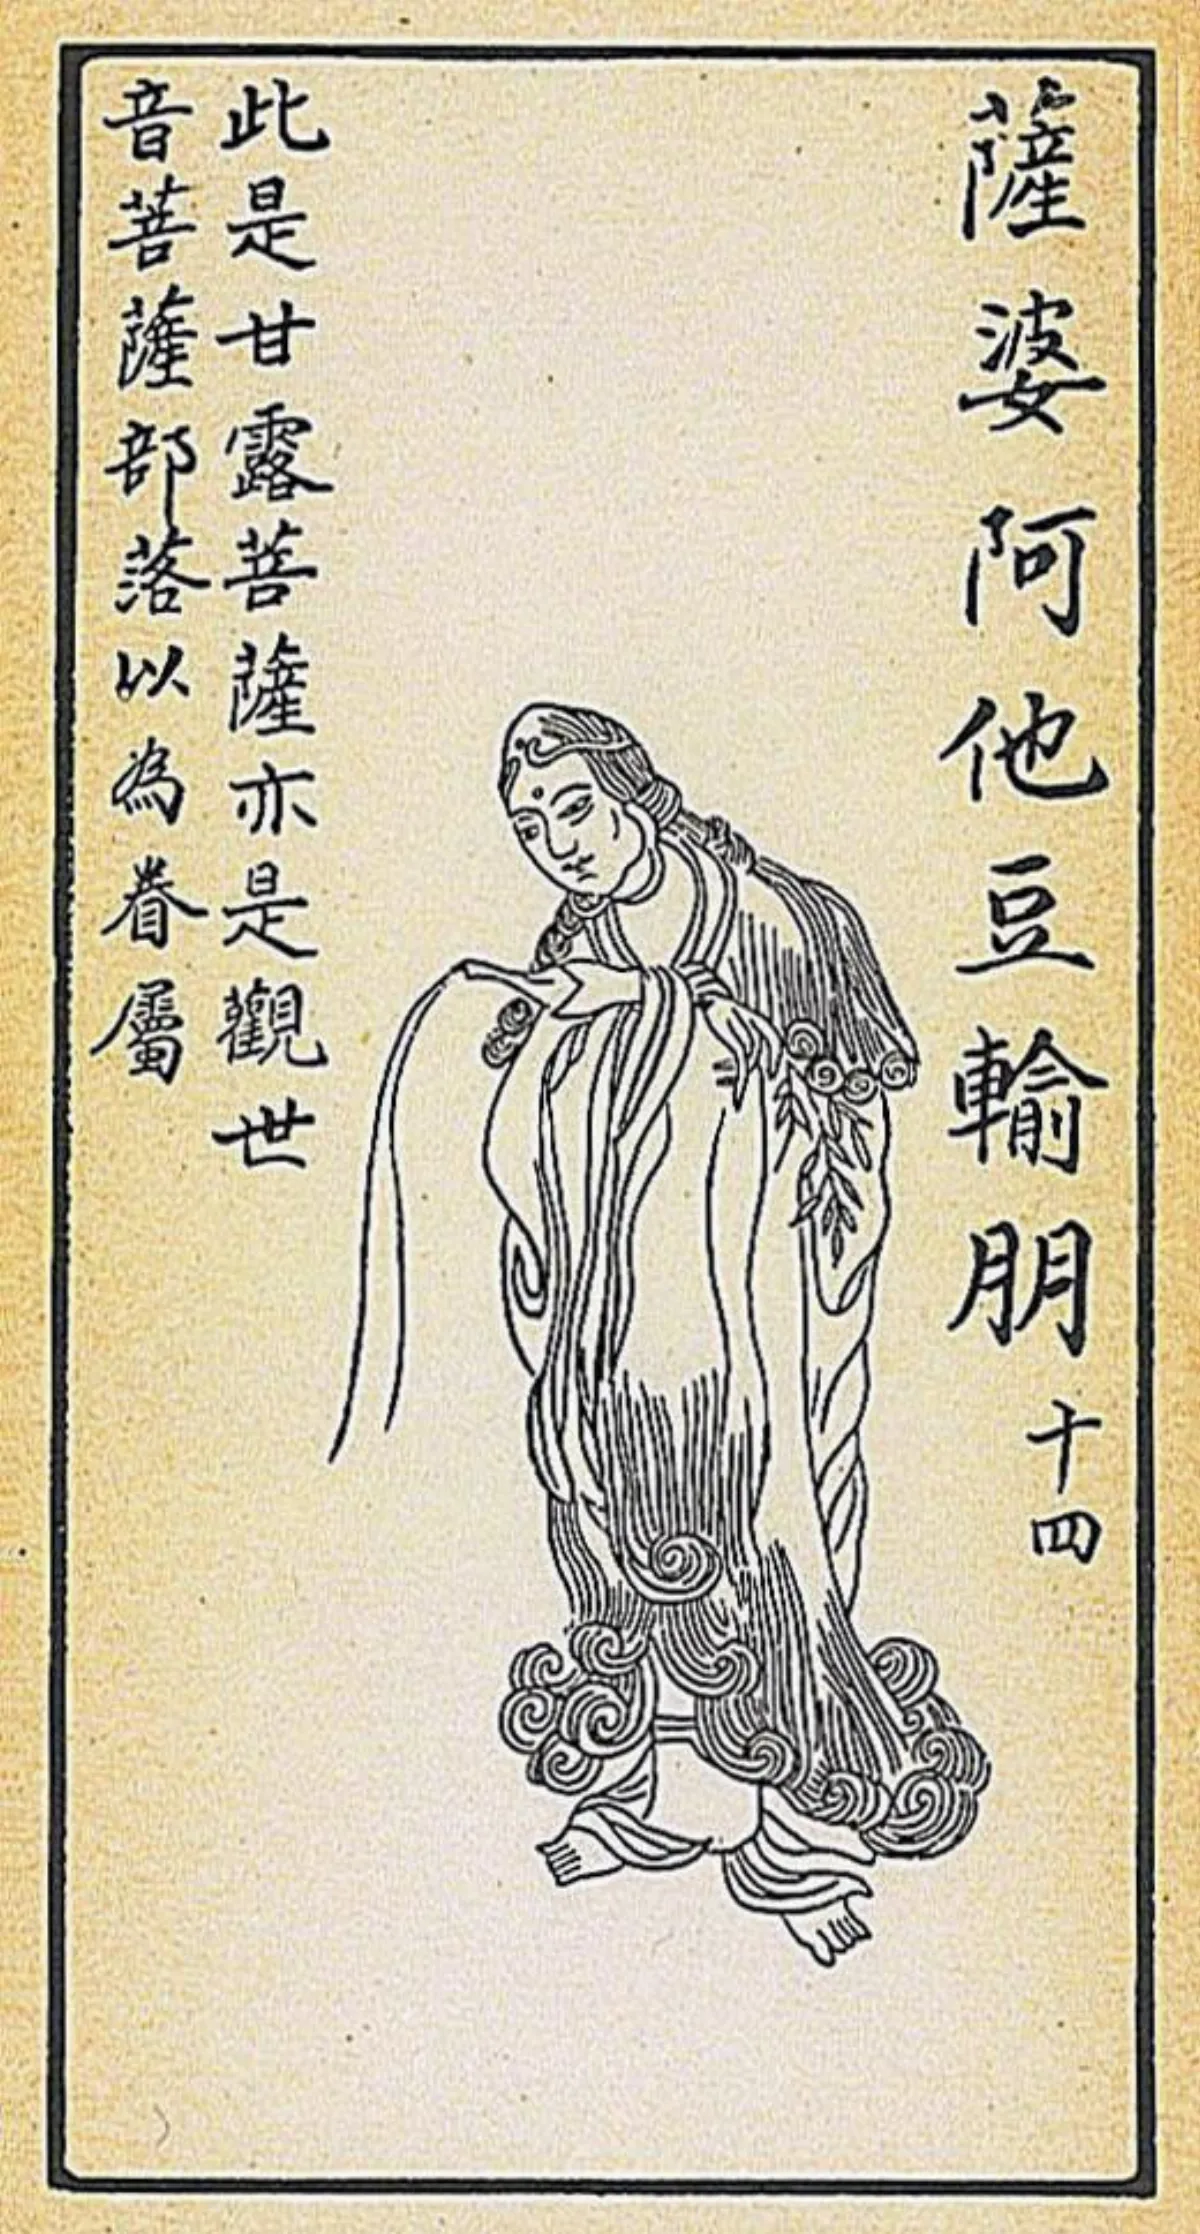 薩婆阿他豆輸朋十四
此是甘露菩薩亦是觀世
音菩薩部落以為眷屬